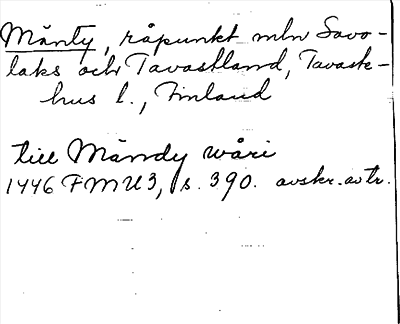 Mänty, råpunkt mln Savo-
laks och Tavastland, Tavaste-
hus l., Finland
till Mändy wåri
1446 FMU 3, s. 390. avskr. av tr.